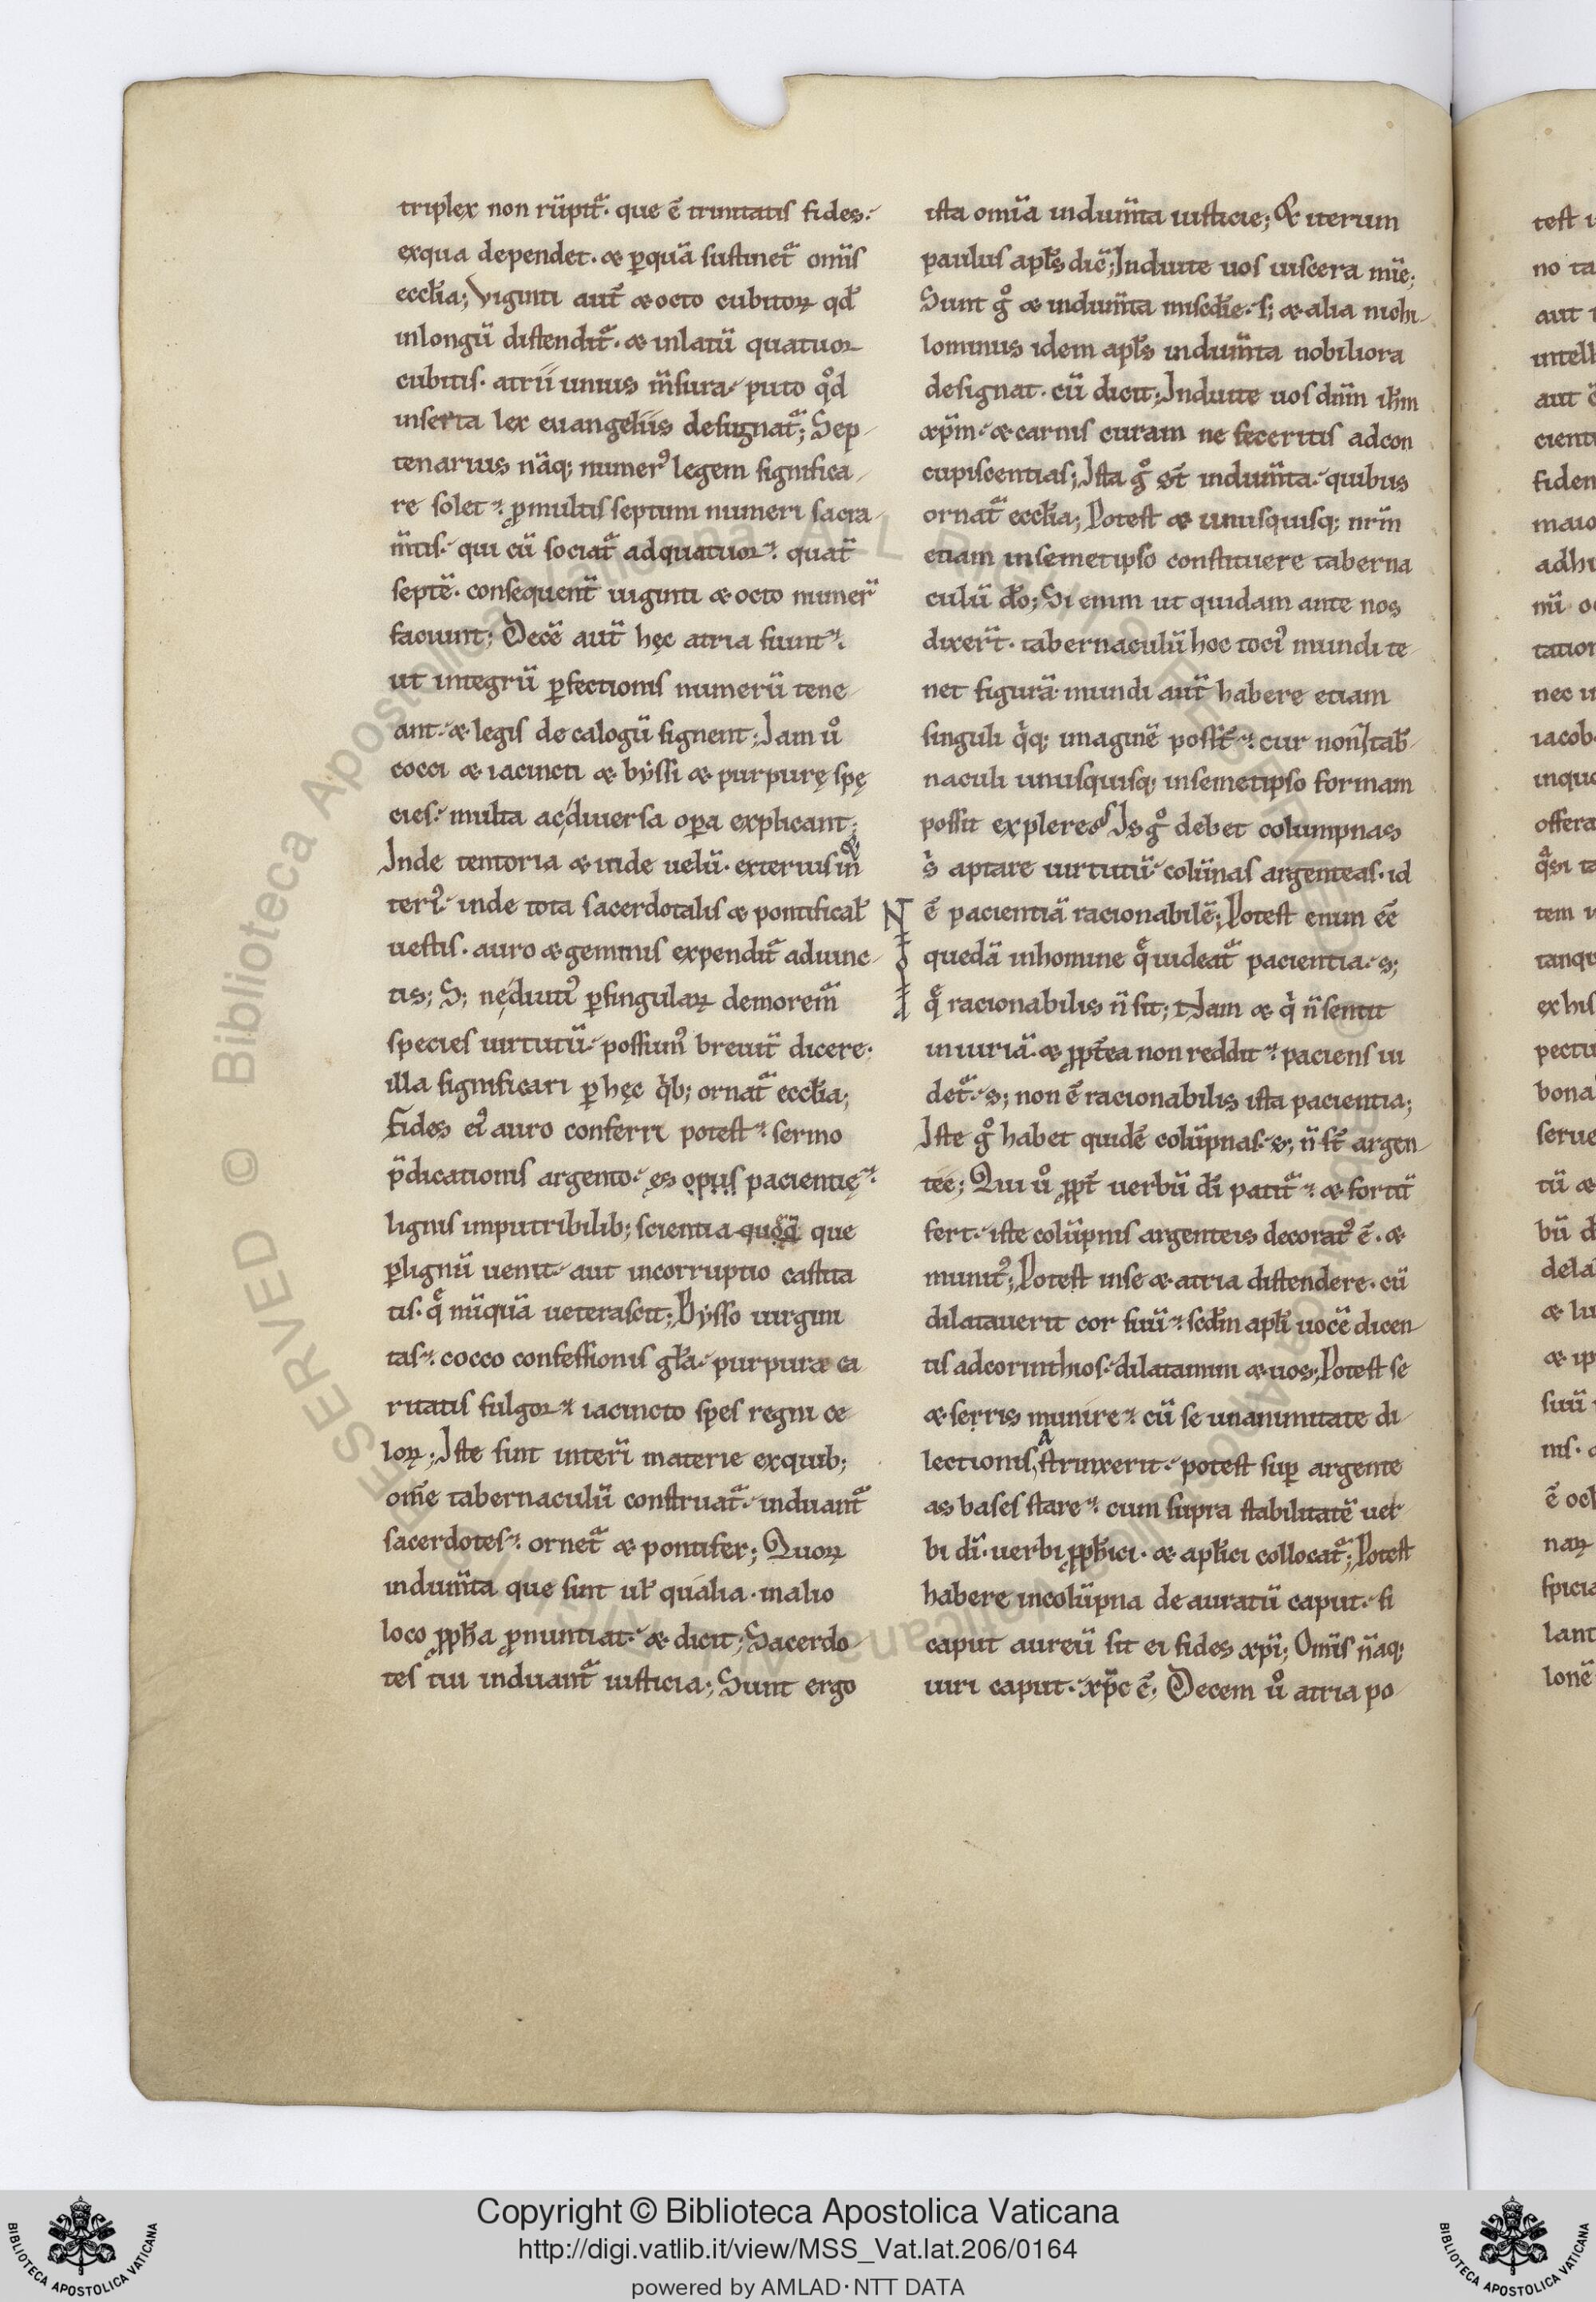 triplex non rūpit᷑. que ē trinitatis fides.
exqua dependet. & ꝑquā sustinet᷑ om̄is
eccl̄ia; Viginti aut̄ & octo cubitoꝝ qd̄
inlongū distendit᷑. & inlatū quatuor
cubitis. atrii unius m̄sura. puto qͦd
inserta lex euangeliis designat᷑; Sep-
tenarius nāq; numerꝰ legem significa-
re solet. ꝓmultis septimi numeri sacra-
m̄tis. qui cū sociat᷑ adquatuor. quat̄
septē. consequent̄ uiginti & octo numer̄
faciunt; Decē aut̄ hęc atria fiunt.
ut integrū ꝑfectionis numerū tene-
ant. & legis decalogū signent; Iam uͦ
cocci & iacincti & byssi & purpurę spę
cies. multa acdiuersa oꝑa explicant;
Inde tentoria & inde uelū. exterius & in
teriꝰ. inde tota sacerdotalis & pontifical̄
uestis. auro & gemmis expendit᷑ adiunc-
tis; S; nediutiꝰ ꝑsingulaꝝ demorem᷑
species uirtutū. possumꝰ breuit̄ dicere.
illa significari ꝑ hęc qͥb; ornat᷑ eccl̄ia;
Fides eiꝰ auro conferri potest. sermo
p̄dicationis argento. ęs opus pacientię.
lignis imputribilib; scientia quoq̄ que
ꝑlignū uenit. aut incorruptio castita
tis. q̄ nūquā ueterascit; Bysso uirgini
tas. cocco confessionis gl̄a. purpura ca
ritatis fulgor. iacincto spes regni ce-
loꝝ; Iste sint interi materie exquib;
om̄e tabernaculū construat᷑. induant᷑
sacerdotes. ornet᷑ & pontifex; Quoꝝ
indum̄ta que sint ul̄ qualia. inalio
loco ꝓph̄a ꝓnuntiat. & dicit; Sacerdo-
tes tui induant᷑ iusticia; Sunt ergo
ista omīa indum̄ta iusticie; & iterum
paulus apl̄s dic̄; Induite uos uiscera mīe;
Sunt gͦ & indum̄ta miscd̄ie. s; & alia nichi-
lominus idem apl̄s indum̄ta nobiliora
designat. cū dicit; Induite uos dn̄m ih̄m
xp̄m. & carnis curam ne feceritis adcon
cupiscentias; Ista gͦ st̄ indum̄ta. quibus
ornat᷑ eccl̄ia; Potest & unusquisq; nr̄m
etiam insemetipso constituere taberna
culū do; Si enim ut quidam ante nos
dixer̄t. tabernaculū hoc tociꝰ mundi te-
net figurā. mundi aut̄ habere etiam
singuli qͥq; imaginē posst̄. cur non & tab̄-
naculi unusquisq; insemetipso formam
possit explere; Is gͦ debet columpnas
sͥ aptare uirtutū. colūnas argenteas. id
ē pacientiā racionabilē; Potest enim eē
quedā inhomine q̄ uideat᷑ pacientia. s;
q̄ racionabilis n̄ sit; Nam & qͥ n̄ sentit
iniuriā. & ꝓpt̄ea non reddit. paciens ui
det᷑. s; non ē racionabilis ista pacientia;
Iste gͦ habet quidē colūpnas. s; n̄ st̄ argen-
tee; Qui uͦ ꝓpt̄ uerbū dī patit᷑. & fortit̄
fert. iste colūpnis argenteis decoratꝰ ē. &
munitꝰ; Potest inse & atria distendere. cū
dilatauerit cor suū. scd̄m apl̄i uocē dicen-
tis adcorinthios. dilatamini & uos; Potest se
& serris munire. cū se unanimitate di-
lectionis astruxerit. potest suꝑ argente
as bases stare. cum supra stabilitatē uer
bi dī. uerbi ꝓph̄ici. & apl̄ici collocat᷑; Potest
habere incolūpna deauratū caput. si
caput aureū sit ei fides xp̄i; Om̄is nāq;
uiri caput. xp̄c ē; Decem uͦ atria po-